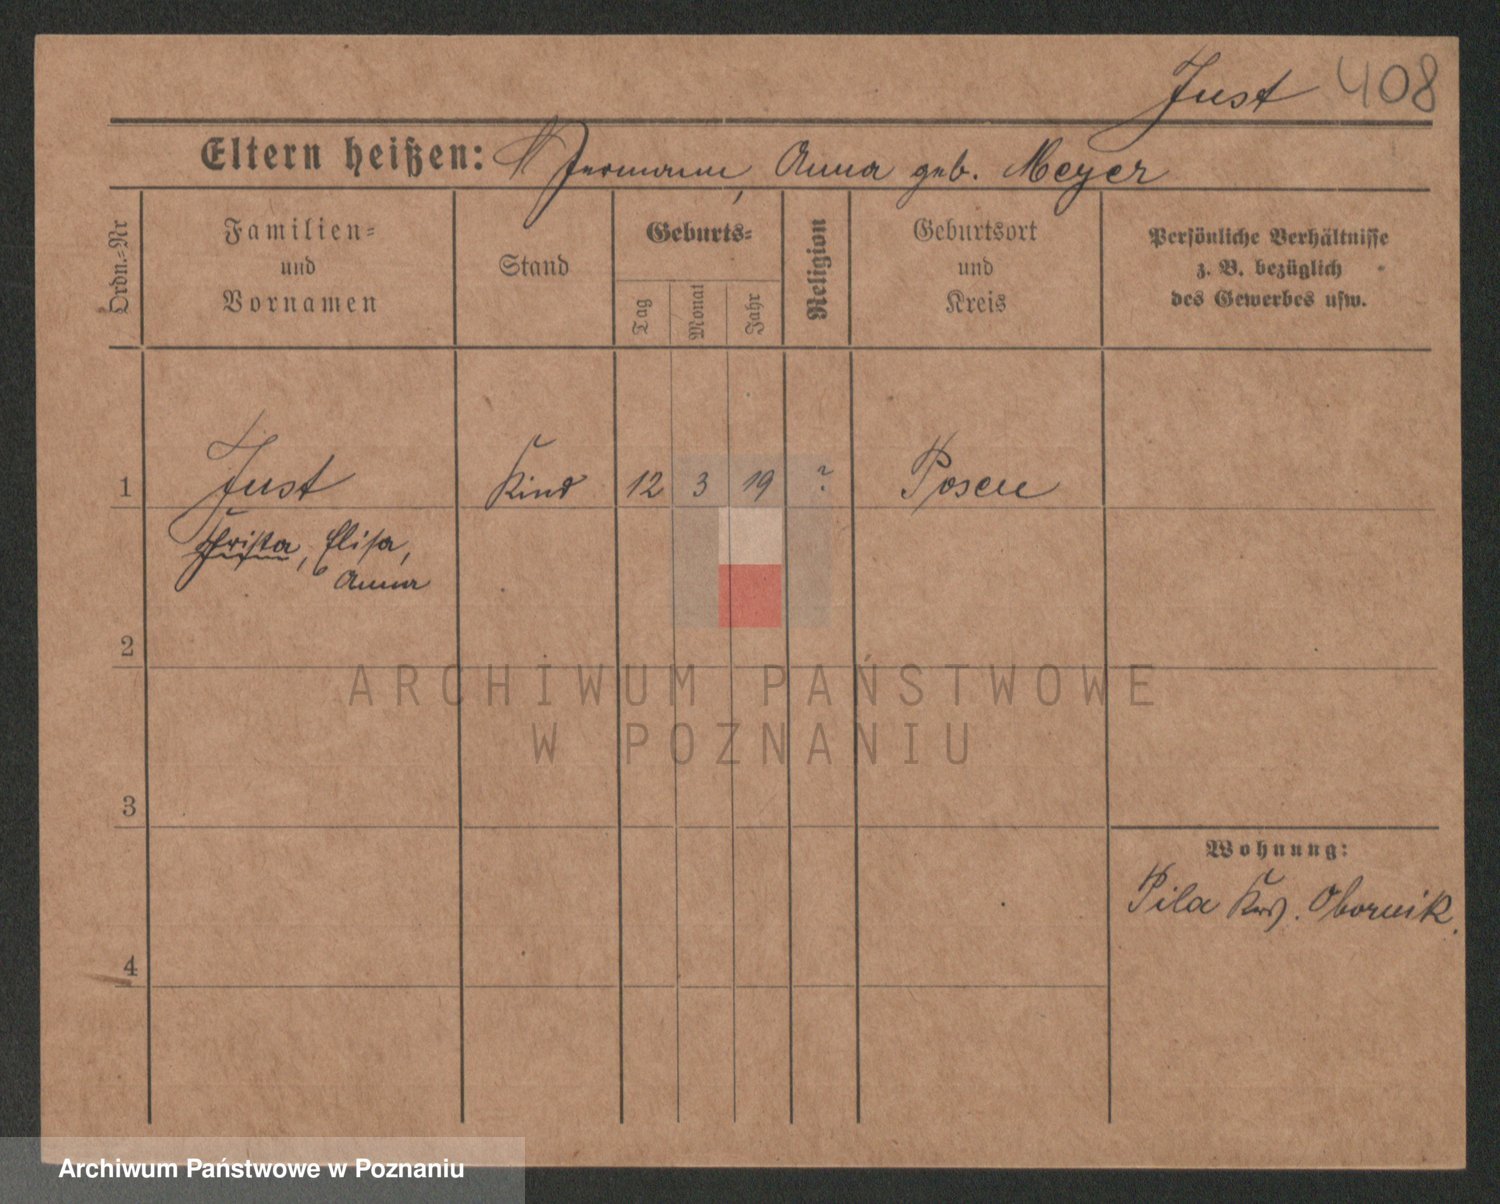 Just 408
Eltern heißen: Hermann, Anna geb. Meyer
Ordn.-Nr
Familien-
und
Vornamen
Stand
Geburts-
Tag
Monat
Jahr
Religion
Geburtsort
und
Kreis
Persönliche Verhältnisse
z. B. bezüglich
des Gewerbes usw.
1 Just Kind 12 3 19 ? Posen
Christa, Elisa,
Anna
2
ARCHIWUM PAŃSTWOWE
W POZNANIU
3
Wohnung:
Pila Krs. Obornik.
4
Archiwum Państwowe w Poznaniu